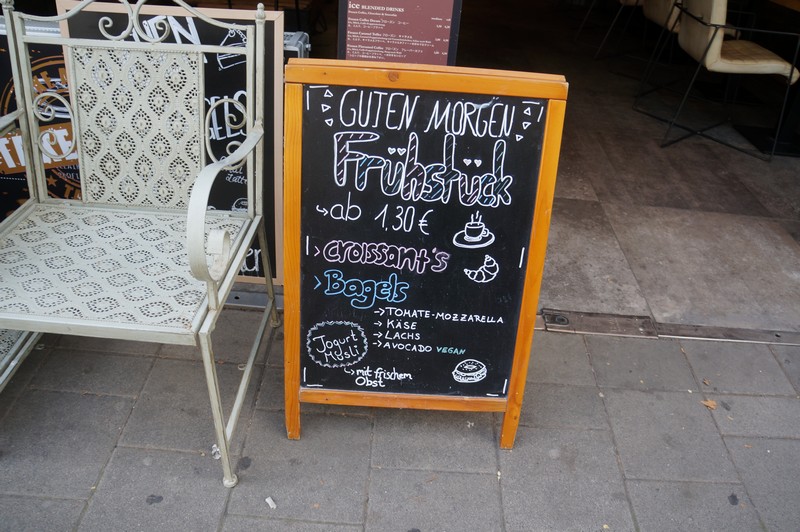 ice BLENDED DRINKS
GUTEN MORGEN
Frühstück
ab 1,30 €
croissant's
Bagels
→ TOMATE-MOZZARELLA
→ KÄSE
→ LACHS
→ AVOCADO VEGAN
Jogurt
Müsli
mit frischem
Obst